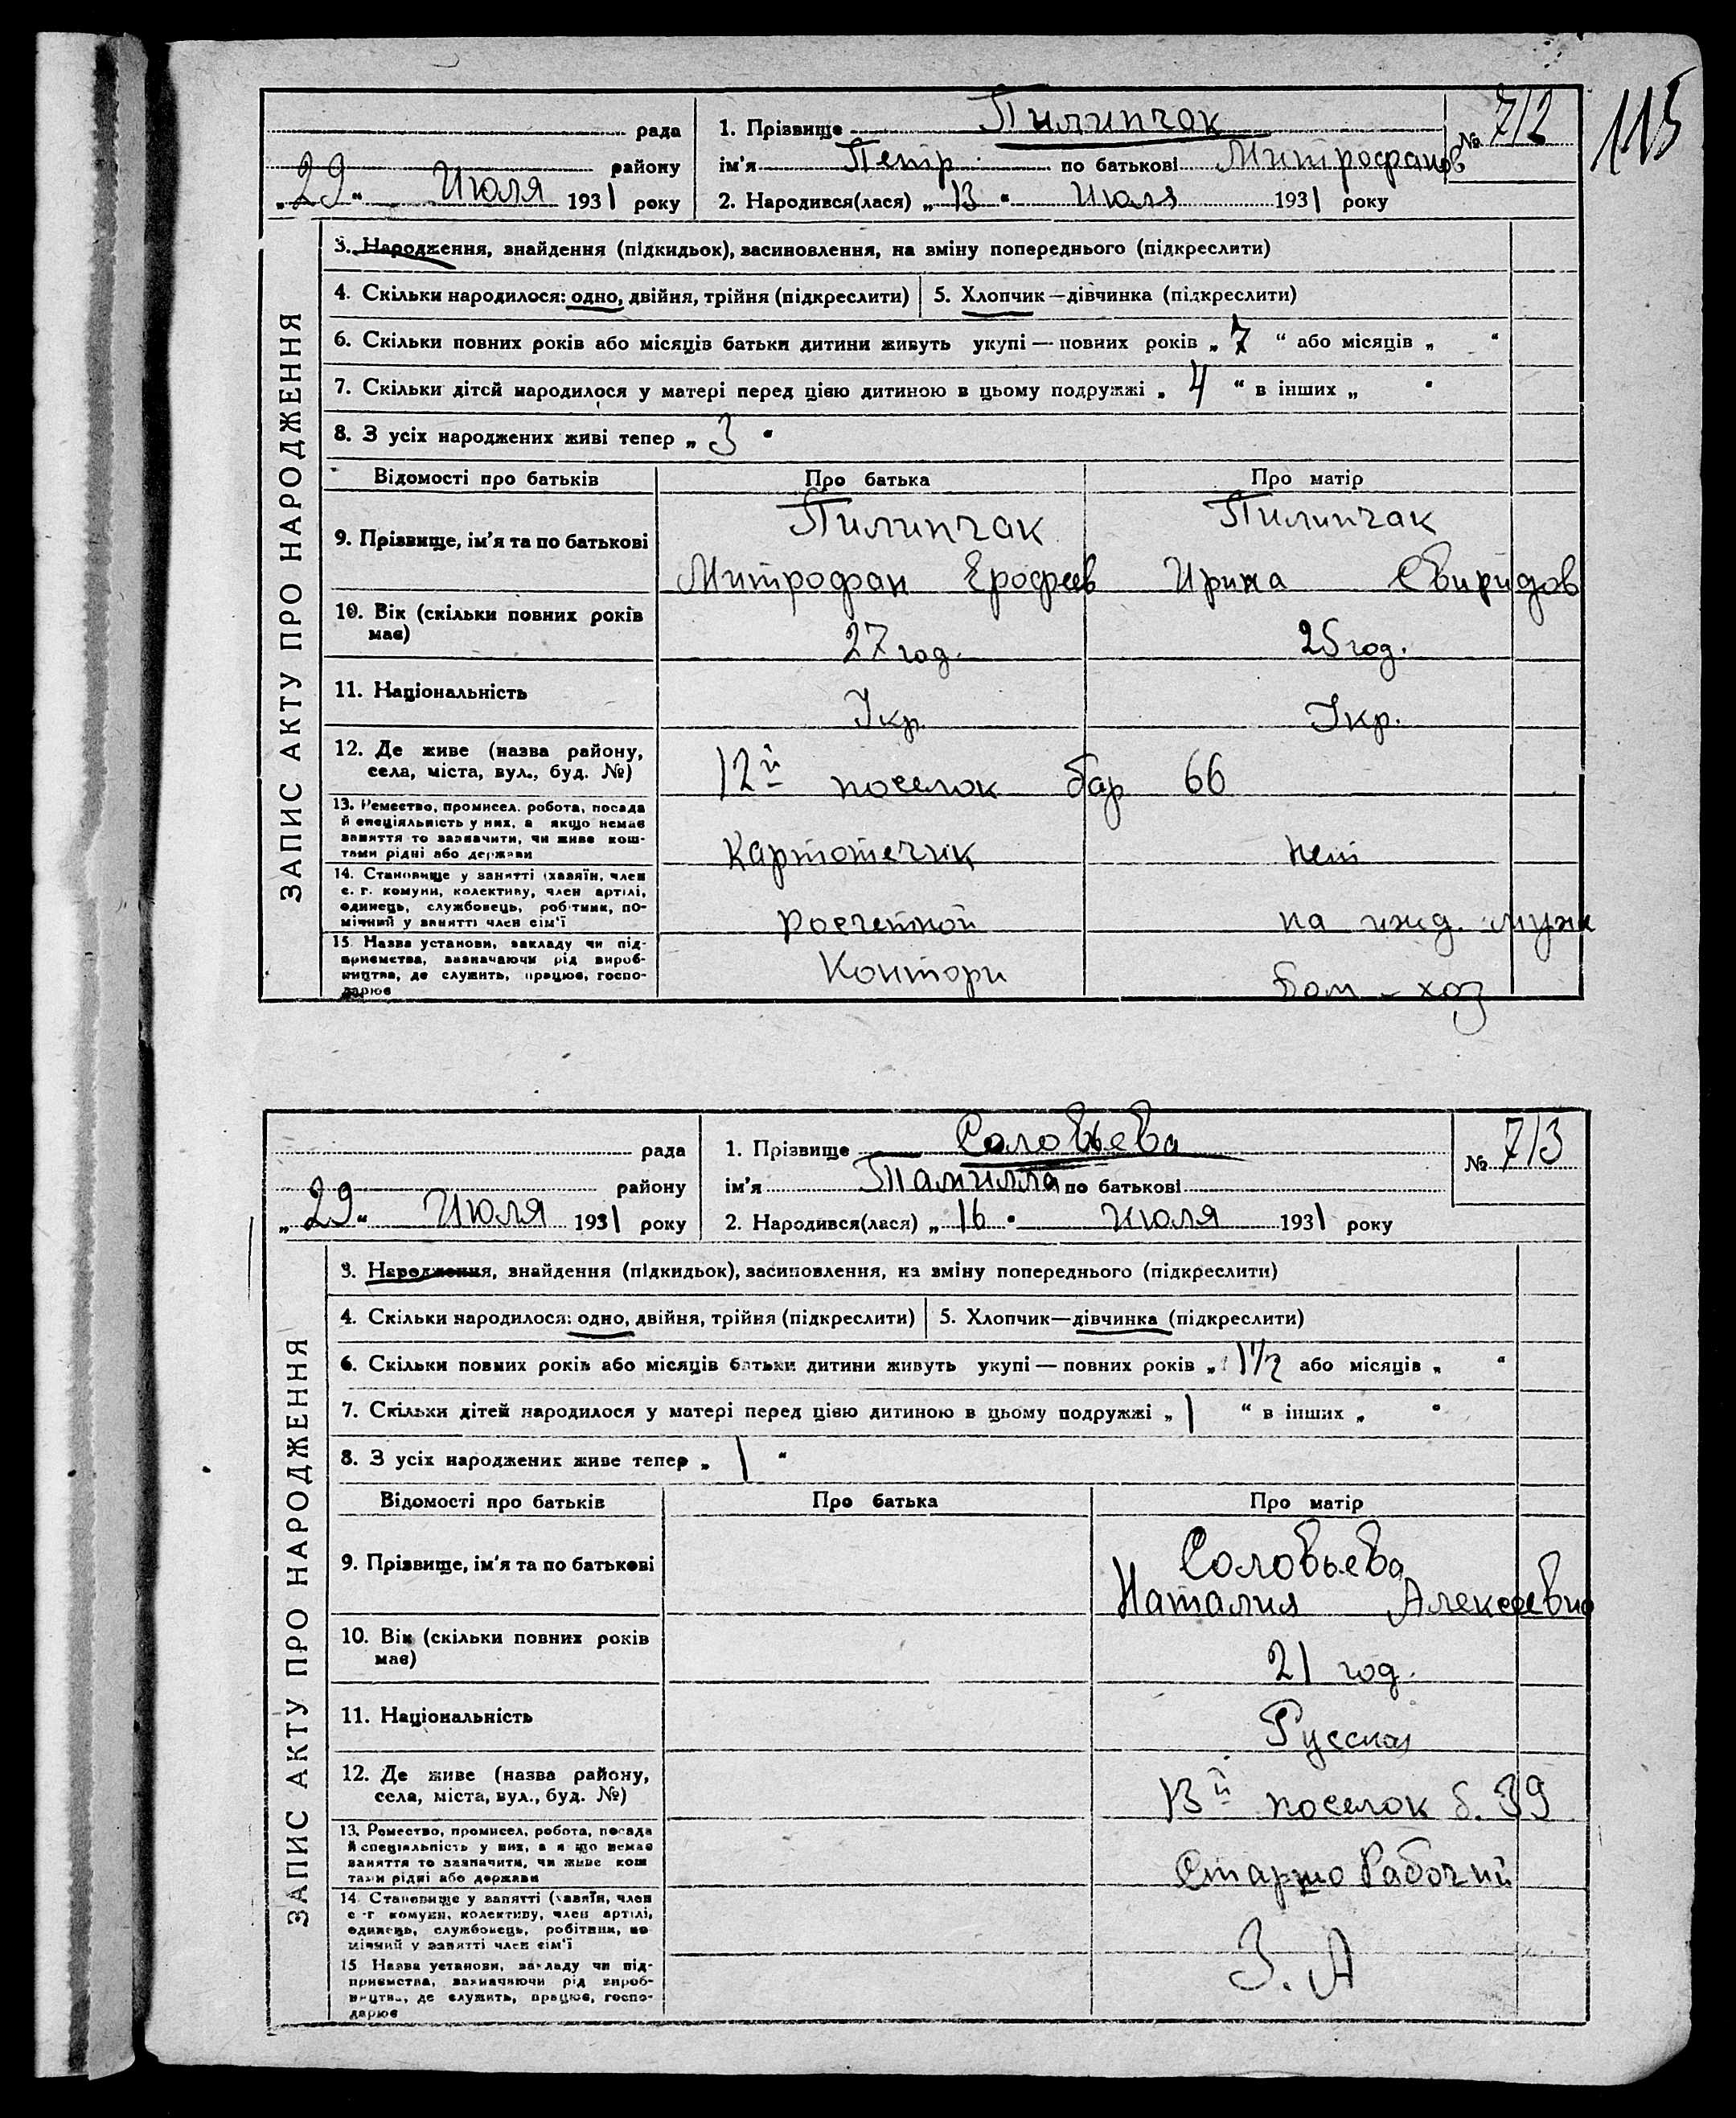 115
рада
1. Прізвище Пилипчак
№ 712
району
ім'я Петр по батькові Митрофанов
„29“ Июля 1931 року
2. Народився(лася) „13“ Июля 1931 року
ЗАПИС АКТУ ПРО НАРОДЖЕННЯ
3. Народження, знайдення (підкидьок), засиновлення, на зміну попереднього (підкреслити)
4. Скільки народилося: одно, двійня, трійня (підкреслити) 5. Хлопчик—дівчинка (підкреслити)
6. Скільки повних років або місяців батьки дитини живуть укупі — повних років „7“ або місяців „ “
7. Скільки дітей народилося у матері перед цією дитиною в цьому подружжі „4“ в інших „ “
8. З усіх народжених живі тепер „3“
Відомості про батьків Про батька Про матір
9. Прізвище, ім'я та по батькові
Пилипчак Пилипчак
Митрофан Ерофеев Ирина Свиридов
10. Вік (скільки повних років
має)
27 год. 25 год.
11. Національність
Укр. Укр.
12. Де живе (назва району,
села, міста, вул., буд. №)
12й поселок бар 66
13. Ремество, промисел, робота, посада
й спеціяльність у них, а якщо немає
заняття то зазначити, чи живе кош-
тами рідні або держави
Картотечик нет
14. Становище у занятті (хазяїн, член
с. г. комуни, колективу, член артілі,
одинець, службовець, робітник, по-
мічний у занятті член сім'ї
Росчетной на ижд. мужа
15. Назва установи, закладу чи під-
приємства, зазначаючи рід вироб-
ництва, де служить, працює, госпо-
дарює
Контори Дом-хоз
рада
1. Прізвище Соловьева
№ 713
району
ім'я Тамилла по батькові
„29“ Июля 1931 року
2. Народився(лася) „16“ Июля 1931 року
ЗАПИС АКТУ ПРО НАРОДЖЕННЯ
3. Народження, знайдення (підкидьок), засиновлення, на зміну попереднього (підкреслити)
4. Скільки народилося: одно, двійня, трійня (підкреслити) 5. Хлопчик—дівчинка (підкреслити)
6. Скільки повних років або місяців батьки дитини живуть укупі — повних років „1½ або місяців „ “
7. Скільки дітей народилося у матері перед цією дитиною в цьому подружжі „1 “ в інших „ “
8. З усіх народжених живе тепер „1“
Відомості про батьків Про батька Про матір
9. Прізвище, ім'я та по батькові
Соловьева
Наталия Алексеевна
10. Вік (скільки повних років
має)
21 год.
11. Національність
Русская
12. Де живе (назва району,
села, міста, вул., буд. №)
13й поселок б. 39
13. Ремество, промисел, робота, посада
й спеціяльність у них, а якщо немає
заняття то зазначити, чи живе кош
тами рідні або держави
Старшо Рабочий
14. Становище у занятті (хазяїн, член
с-г комуни, колективу, член артілі,
одинець, службовець, робітник, по
мічний у занятті член сім'ї
15 Назва установи, закладу чи під-
приємства, зазначаючи рід вироб-
ництва, де служить, працює, госпо-
дарює
З. А